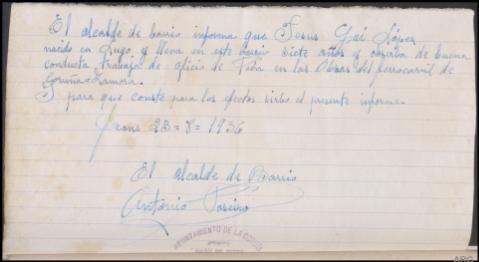 El alcalde de barrio informa que Jesus López
nacido en Lugo, y lleva en este barrio siete años y de buena
conducta, trabaja de oficio de Peón en las Obras del ferrocarril de
Coruña=Zamora.
I para que conste para los efectos el presente informe.
23=8=1936
El alcalde de Barrio
Antonio
AYUNTAMIENTO DE LA CORUÑA
ARG